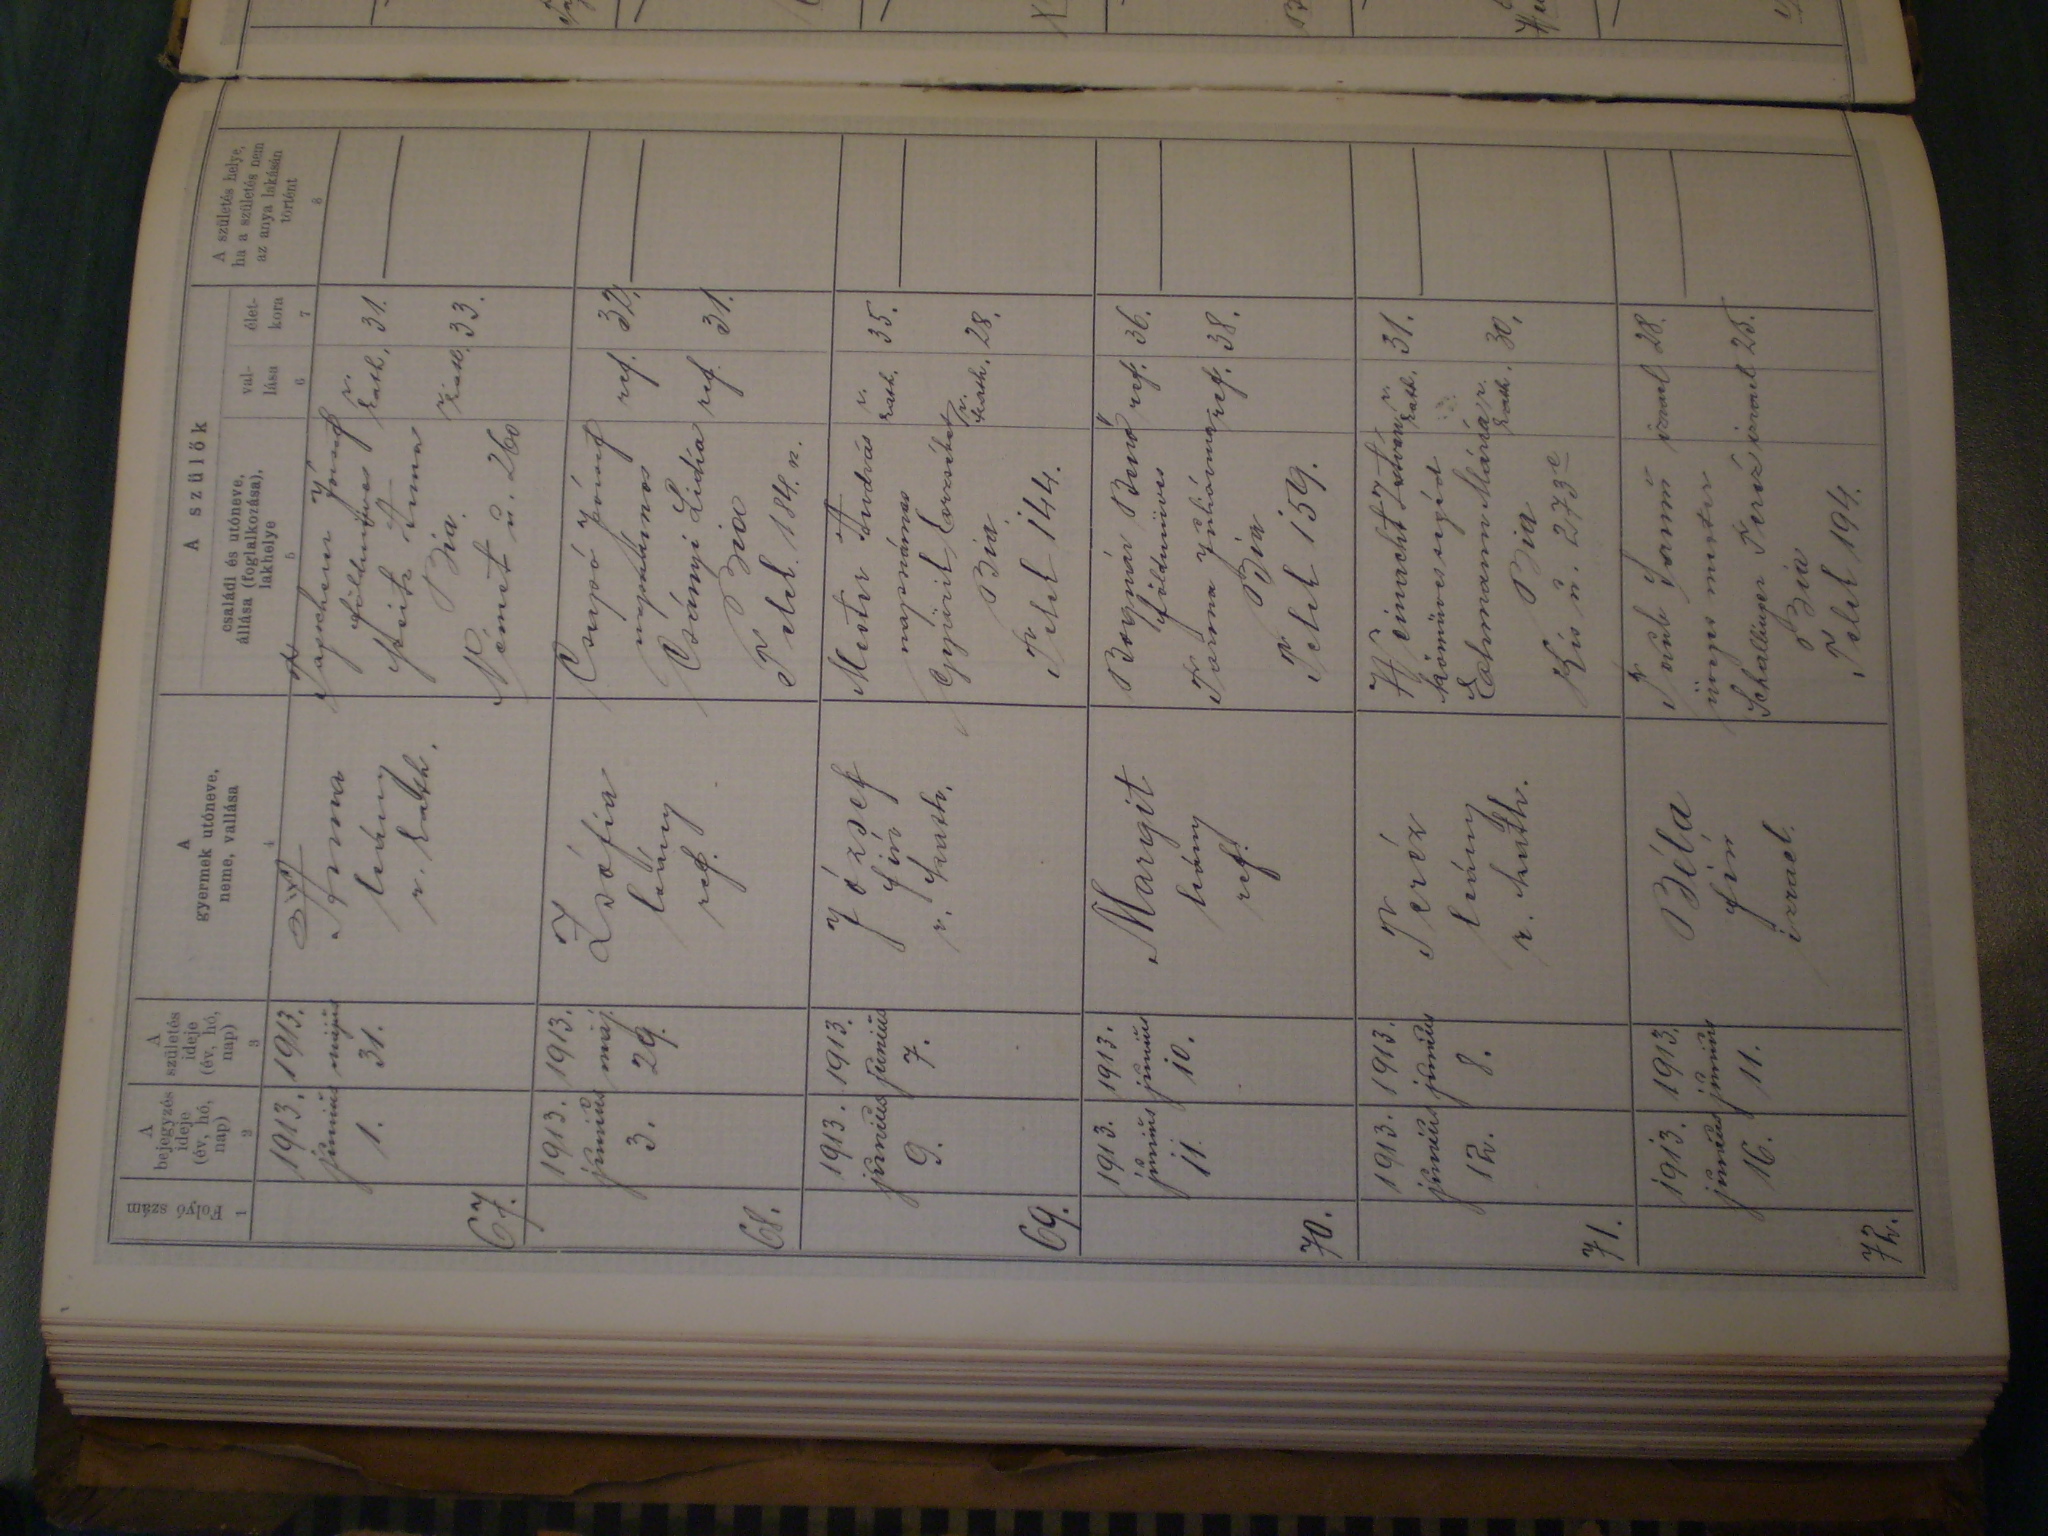 A szülők
Folyó szám
A bejegyzés ideje (év, hó, nap)
A születés ideje (év, hó, nap)
A gyermek utóneve, neme, vallása
családi és utóneve, állása (foglalkozása), lakhelye
val-lása
élet-kora
A születés helye, ha a születés nem az anya lakásán történt
1 2 3 4 5 6 7 8
67.
1913. junius 1.
1913. május 31.
Anna
leány
r. kath.
József r. kath. 31.
földmíves
Anna r. kath. 33.
Bia
Német u. 260
68.
1913. junius 3.
1913. máj. 29.
Zsófia
leány
ref.
Csupó József ref. 32.
napszámos
Csányi Lidia ref. 31.
Bia
Telek 184. n.
69.
1913. junius 9.
1913. junius 7.
József
fiú
r. kath.
András r. kath. 35.
napszámos
Erzsébet r. kath. 28.
Bia
Telek 144.
70.
1913. junius 11.
1913. junius 10.
Margit
leány
ref.
Bognár Benő ref. 36.
földmíves
Juliánna ref. 38.
Bia
Telek 159.
71.
1913. junius 12.
1913. junius 8.
Teréz
leány
r. kath.
Weinacht István r. kath. 31.
kőmüvessegéd
Mária r. kath. 30.
Bia
Kis u. 273
72.
1913. junius 16.
1913. junius 11.
Béla
fiú
izrael.
izrael 28.
üveges mester
Teréz izrael 25.
Bia
Telek 194.